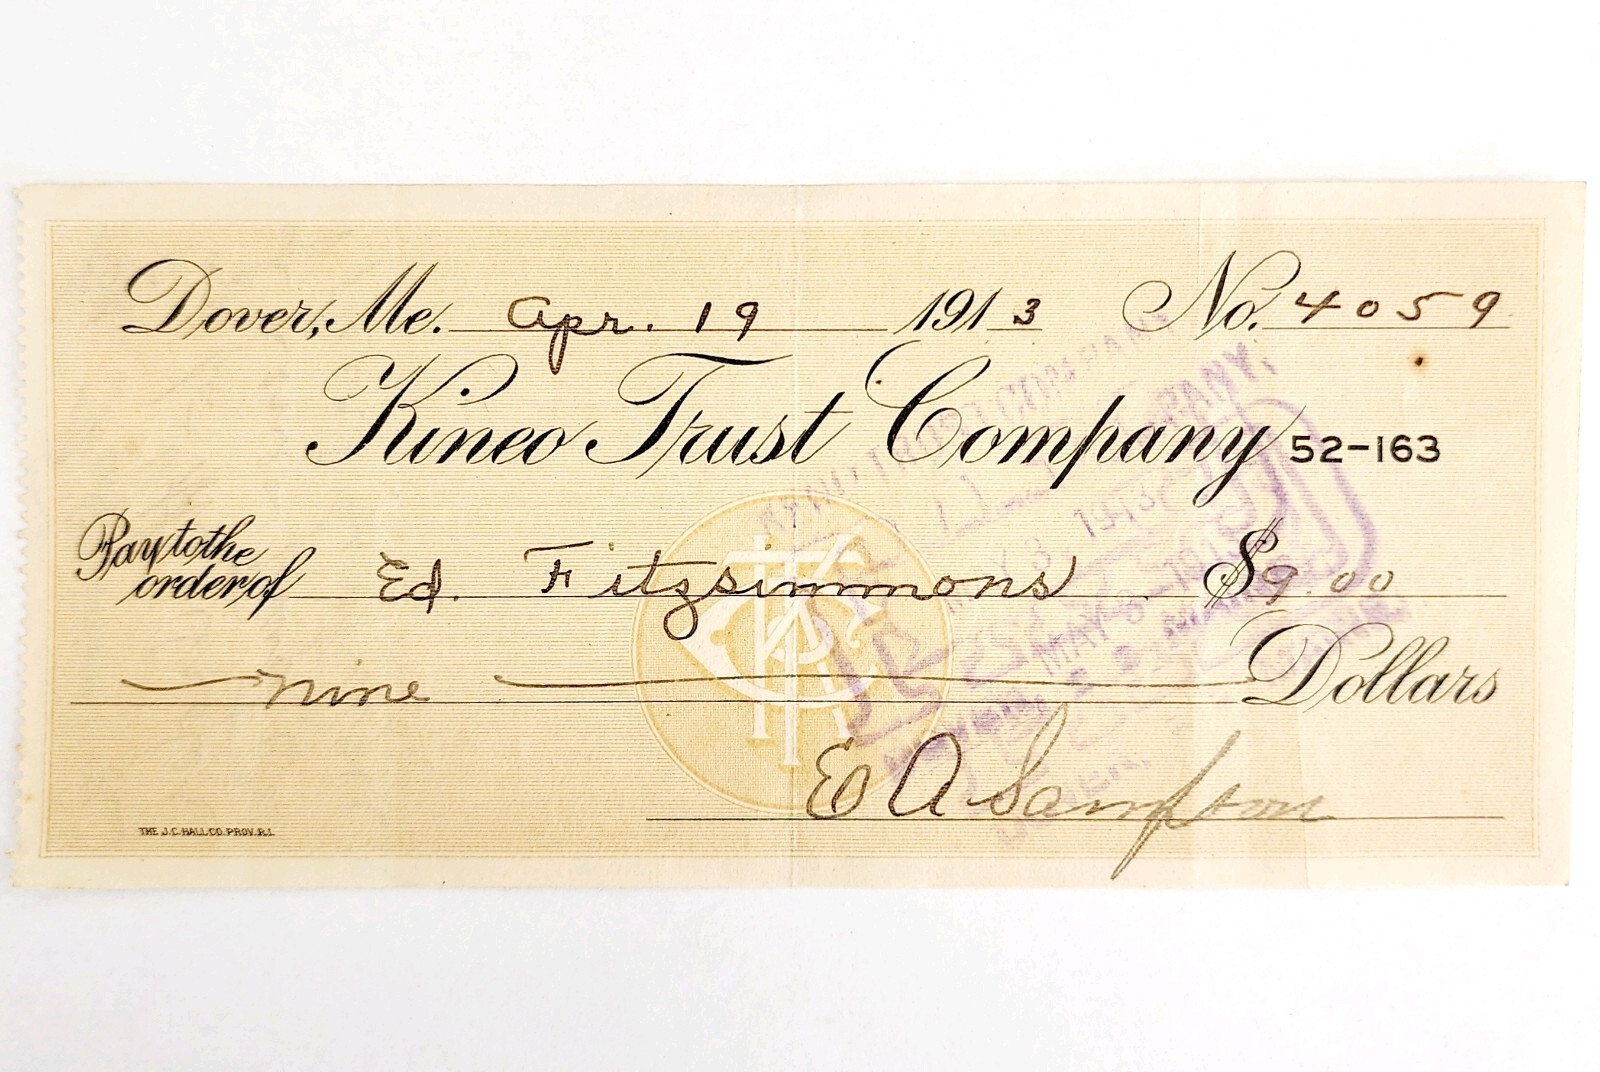 Dover, Me. Apr. 19 1913 No. 4059
Kineo Trust Company 52-163
Pay to the
order of Ed. Fitzsimmons $9.00
nine Dollars
E A Sampson
THE J.C. HALL CO. PROV. R.I.